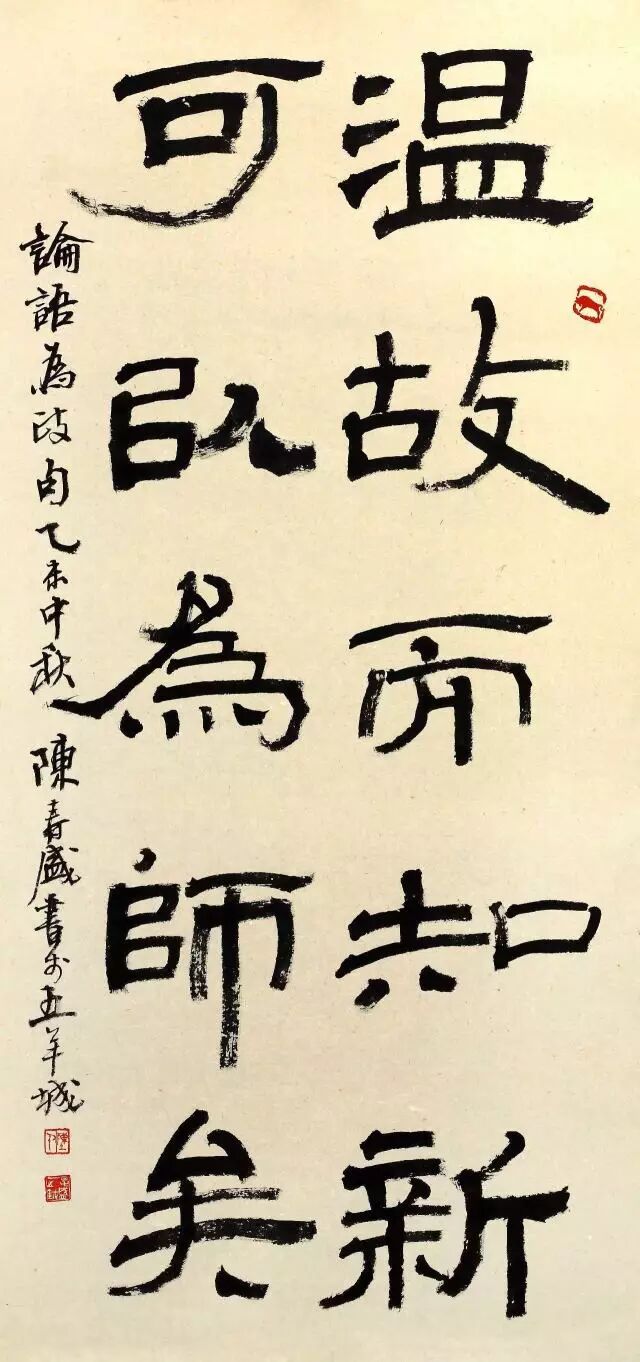 温故而知新
可以為師矣
論語為政句乙未中秋 陳春盛書於五羊城